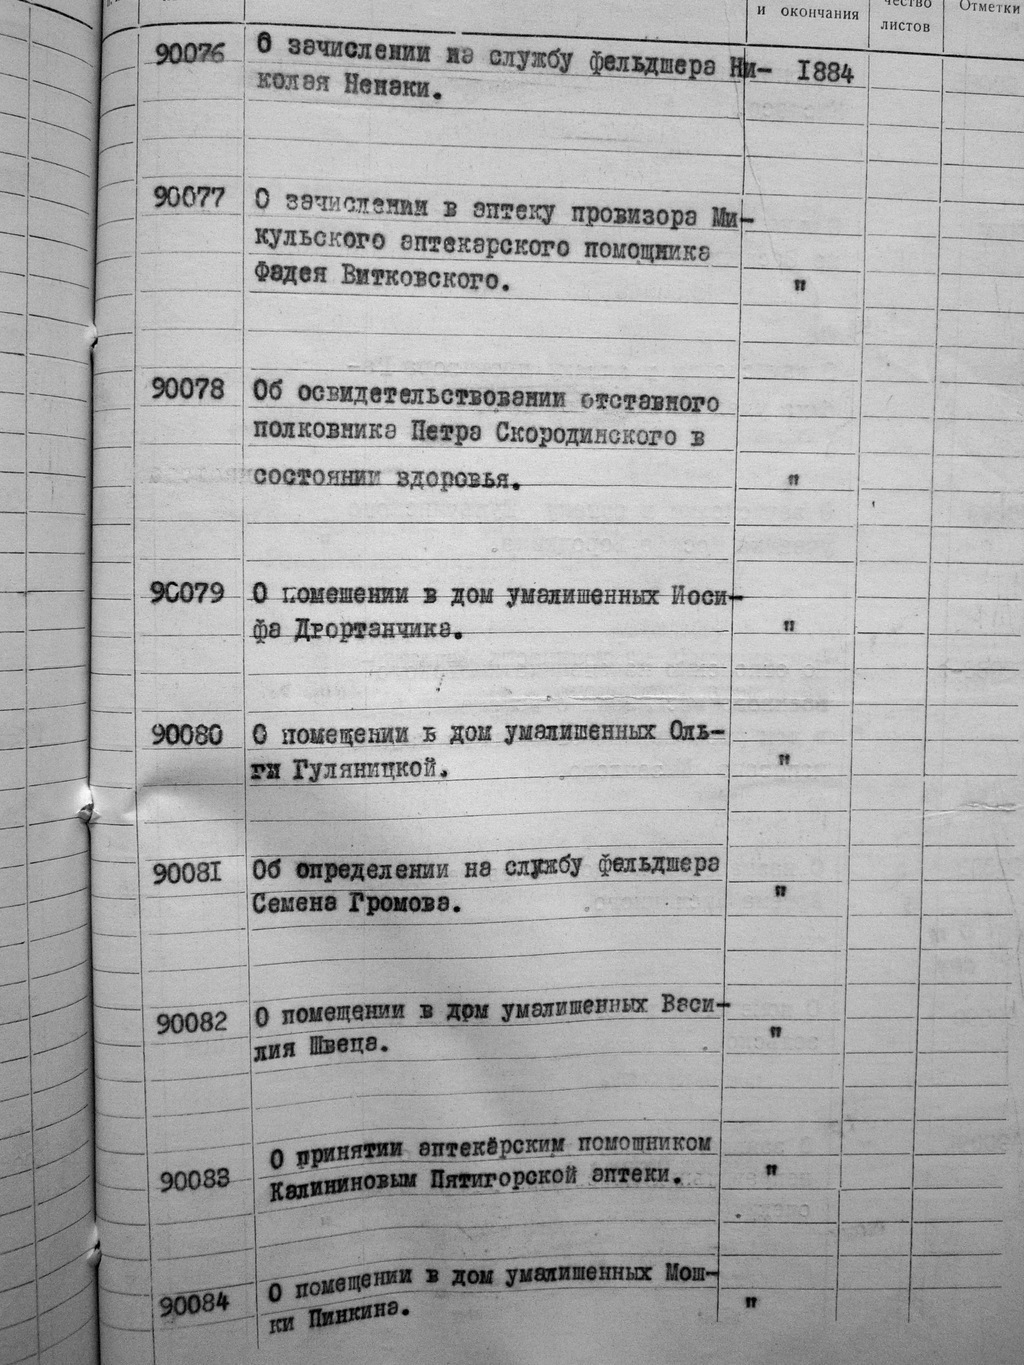 и окончания
чество
листов
Отметки
90076 О зачислении на службу фельдшера Ни- 1884
колая Ненаки.
90077 О зачислении в аптеку провизора Ми-
кульского аптекарского помощника
Фадея Витковского. "
90078 Об освидетельствовании отставного
полковника Петра Скородинского в
состоянии здоровья. "
90079 О помешении в дом умалишенных Иоси-
фа Дрортанчика. "
90080 О помещении в дом умалишенных Оль-
ги Гуляницкой. "
90081 Об определении на службу фельдшера
Семена Громова. "
90082 О помещении в дом умалишенных Васи-
лия Швеца. "
90083 О принятии аптекарским помошником
Калининовым Пятигорской аптеки. "
90084 О помещении в дом умалишенных Мош-
ки Пинкина. "